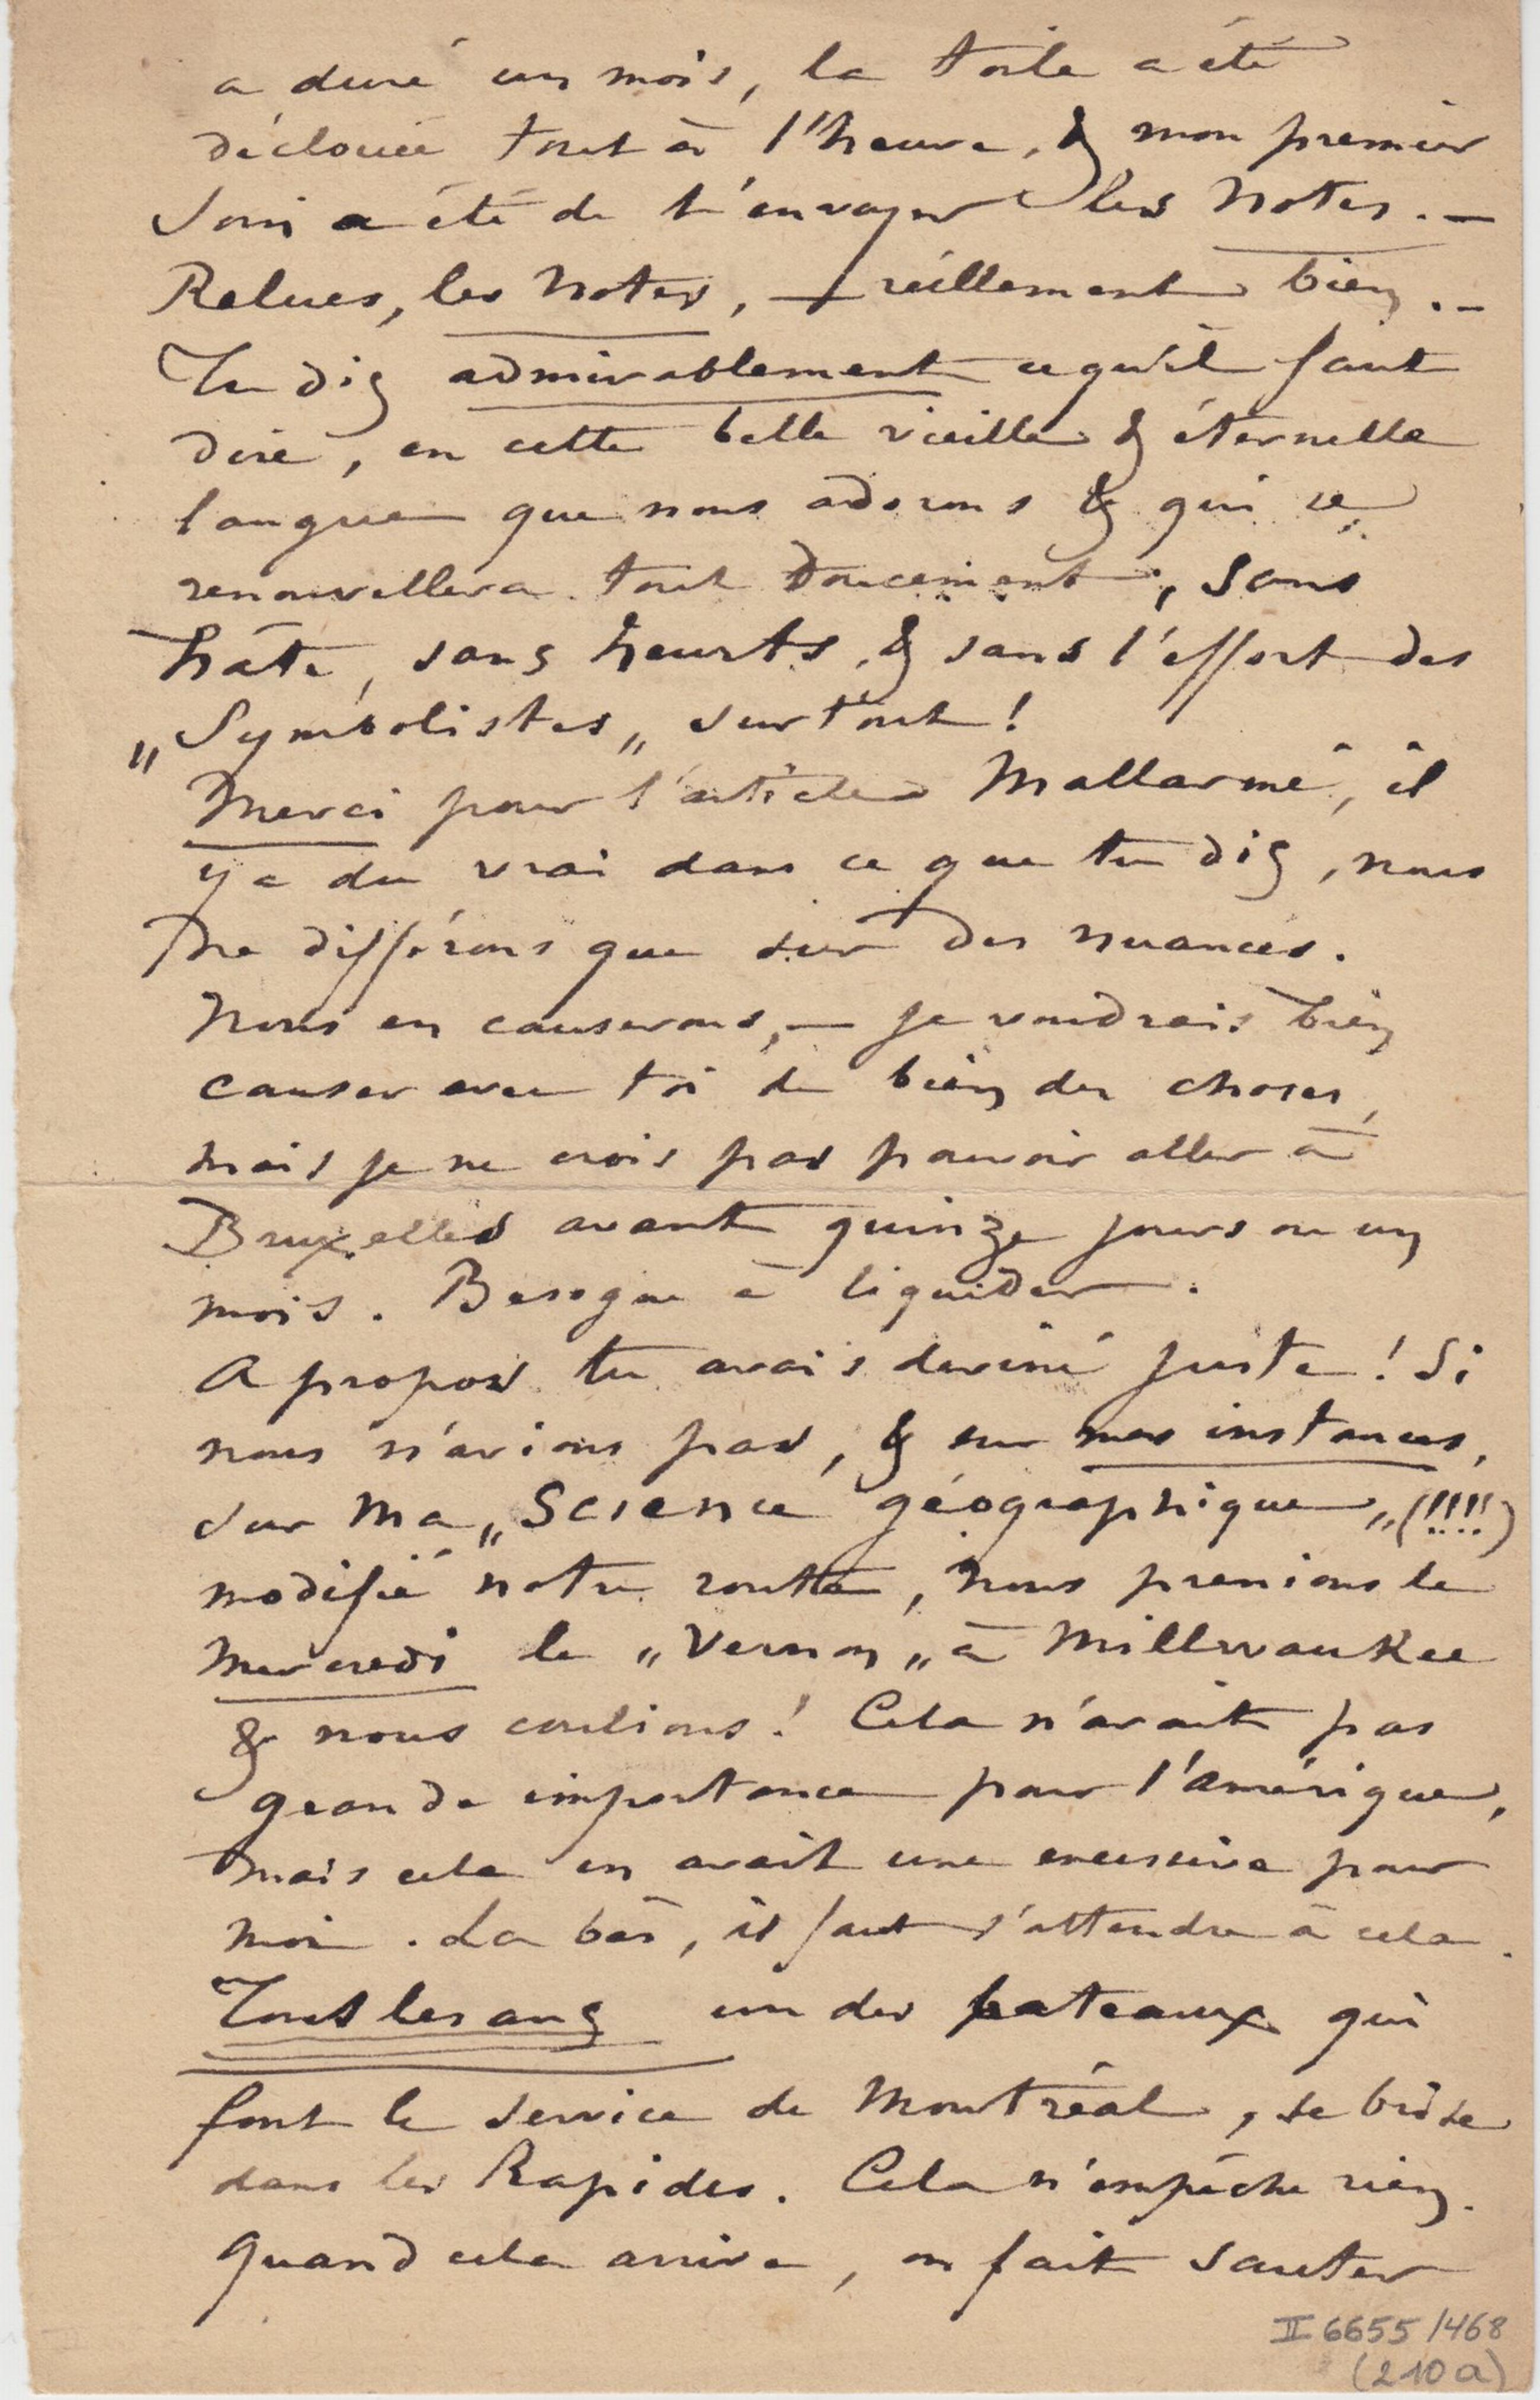 a duré un mois, la toile a été
déclouée tout à l'heure, & mon premier
soin a été de t'envoyer les Notes. —
Relues, les Notes, — réellement bien. —
Tu dis admirablement ce qu'il faut
dire, en cette belle vieille & éternelle
langue que nous adorons & qui se
renouvellera tout doucement, sans
hâte, sans heurts, & sans l'effort des
„Symbolistes„ surtout!
Merci pour l'article Mallarmé, il
y a du vrai dans ce que tu dis, nous
ne différons que sur des nuances.
Nous en causerons, — je voudrais bien
causer avec toi de bien des choses,
mais je ne crois pas pouvoir aller à
Bruxelles avant quinze jours ou un
mois. Besogne à liquider.
A propos tu avais deviné juste! Si
nous n'avions pas, & sur mes instances,
sur ma „Science géographique„ (!!!!)
modifié notre route, nous prenions le
mercredi le „Vernon„ à Millwaukee
& nous coulions! Cela n'avait pas
grande importance pour l'Amérique,
mais cela en avait une excessive pour
moi. Là bas, il faut s'attendre à cela.
Tous les ans un des bateaux qui
font le service de Montréal, se brise
dans les Rapides. Cela n'empêche rien.
Quand cela arrive, on fait sauter
II 6655/468
(210a)